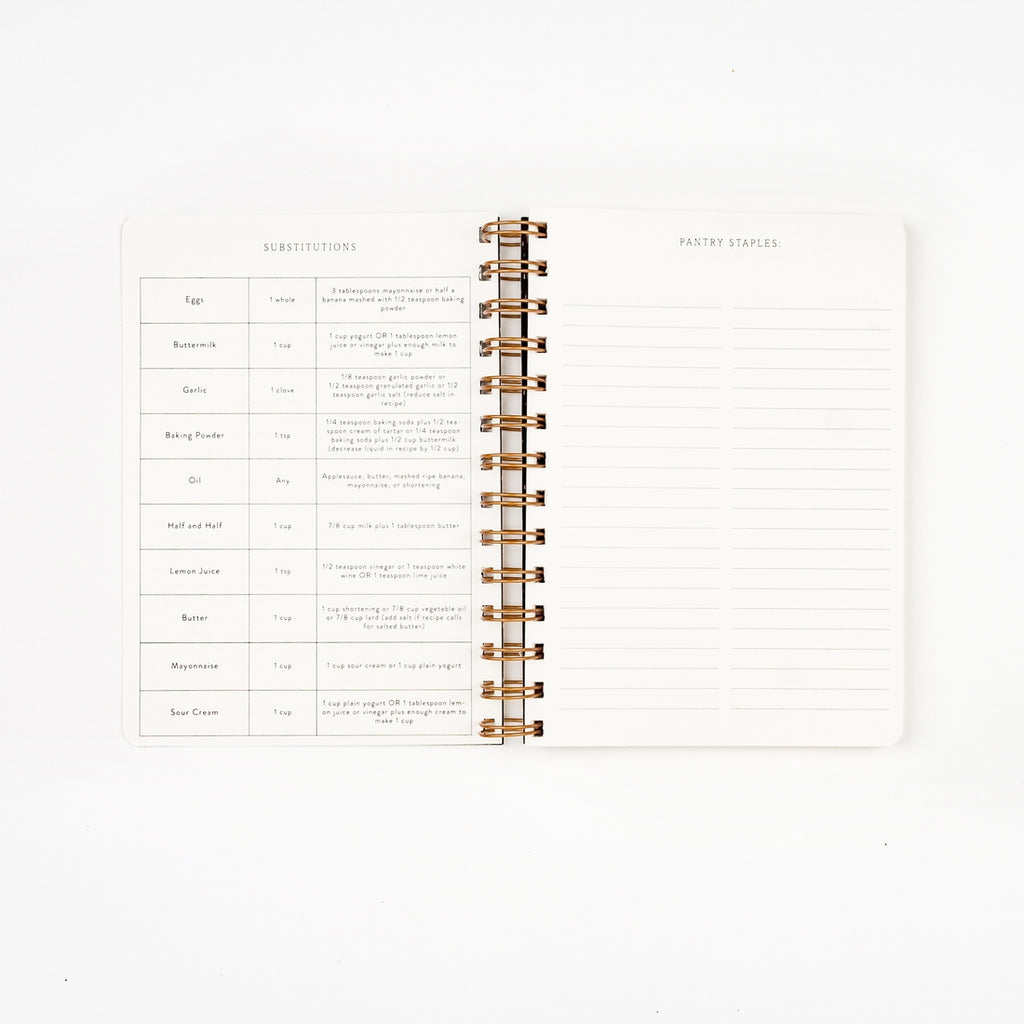 SUBSTITUTIONS
Eggs
1 whole
3 tablespoons mayonnaise or half a
banana mashed with 1/2 teaspoon baking
powder
Buttermilk
1 cup
1 cup yogurt OR 1 tablespoon lemon
juice or vinegar plus enough milk to
make 1 cup
Garlic
1 clove
1/8 teaspoon garlic powder or
1/2 teaspoon granulated garlic or 1/2
teaspoon garlic salt (reduce salt in
recipe)
Baking Powder
1 tsp
1/4 teaspoon baking soda plus 1/2 tea-
spoon cream of tartar or 1/4 teaspoon
baking soda plus 1/2 cup buttermilk
(decrease liquid in recipe by 1/2 cup)
Oil
Any
Applesauce, butter, mashed ripe banana,
mayonnaise, or shortening
Half and Half
1 cup
7/8 cup milk plus 1 tablespoon butter
Lemon Juice
1 tsp
1/2 teaspoon vinegar or 1 teaspoon white
wine OR 1 teaspoon lime juice
Butter
1 cup
1 cup shortening or 7/8 cup vegetable oil
or 7/8 cup lard (add salt if recipe calls
for salted butter)
Mayonnaise
1 cup
1 cup sour cream or 1 cup plain yogurt
Sour Cream
1 cup
1 cup plain yogurt OR 1 tablespoon lem-
on juice or vinegar plus enough cream to
make 1 cup
PANTRY STAPLES: